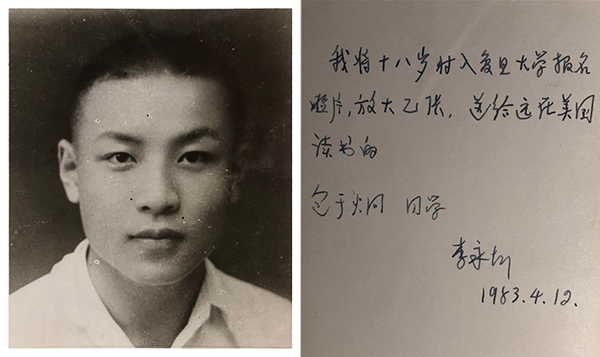 我将十八岁时入复旦大学报名
照片,放大乙张,送给远在美国
读书的
包于炯 同学
李永圻
1983.4.12.